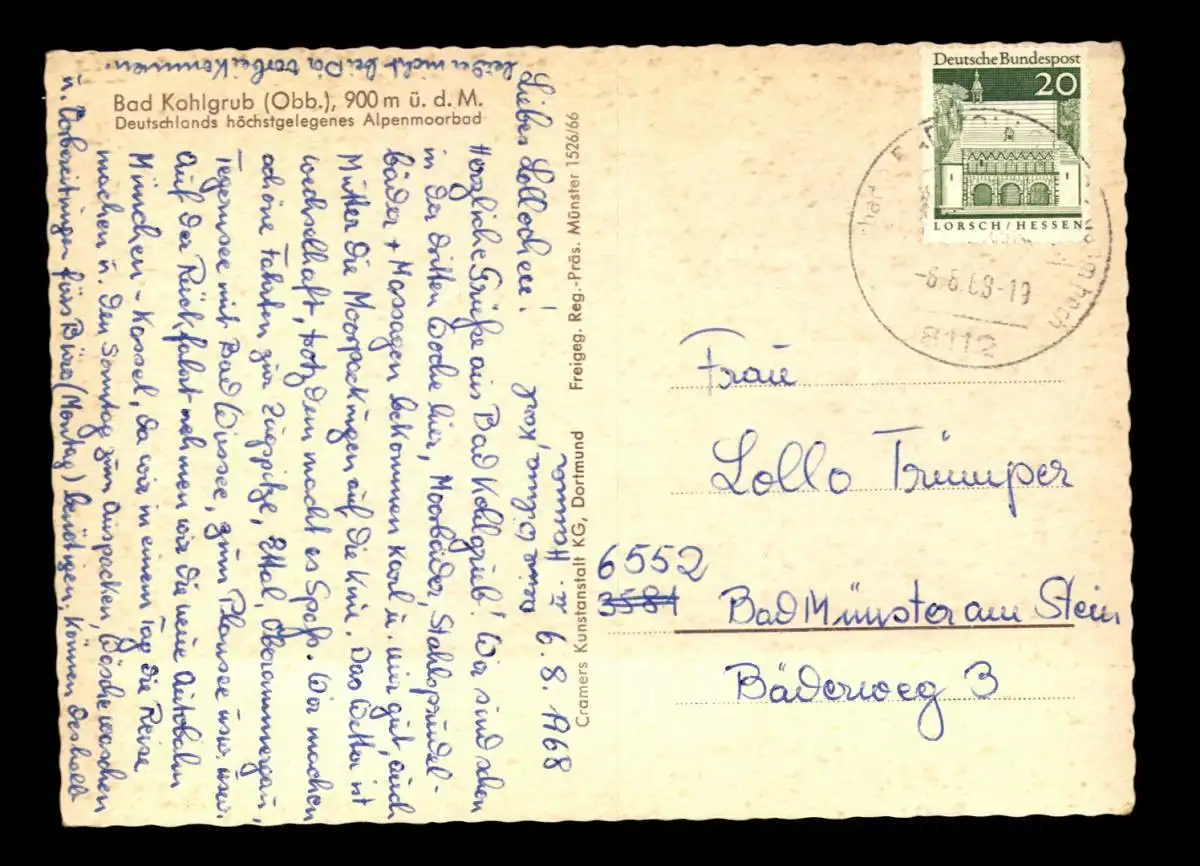 Bad Kohlgrub (Obb.), 900 m ü. d. M.
Deutschlands höchstgelegenes Alpenmoorbad
Liebes Lollochen!
Herzliche Grüße aus Bad Kohlgrub! Wir sind schon
in der dritten Woche hier, Moorbäder, Stahlsprudel-
bäder + Massagen bekommen Karl u. mir gut, auch
Mutter die Moorpackungen auf die Knie. Das Wetter ist
wechselhaft, trotzdem macht es Spaß. Wir machen
schöne Fahrten zur Zugspitze, Ettal, Oberammergau,
Tegernsee mit Bad Wiessee, zum Plansee usw. usw.
Auf der Rückfahrt nehmen wir die neue Autobahn
München - Kassel, da wir in einem Tag die Reise
machen u. den Sonntag zum Auspacken, Wäsche waschen
u. Vorbereitungen fürs Büro (Montag) benötigen. Können deshalb
leider nicht bei Dir vorbeikommen.
6.8.1968
u. Hanna
Cramers Kunstanstalt KG, Dortmund Freigeg. Reg.-Präs. Münster 1526/66
Deutsche Bundespost
20
LORSCH/HESSEN
-6.8.68-19
8112
Frau
Lollo Trümper
6552
3581
Bad Münster am Stein
Bäderweg 3